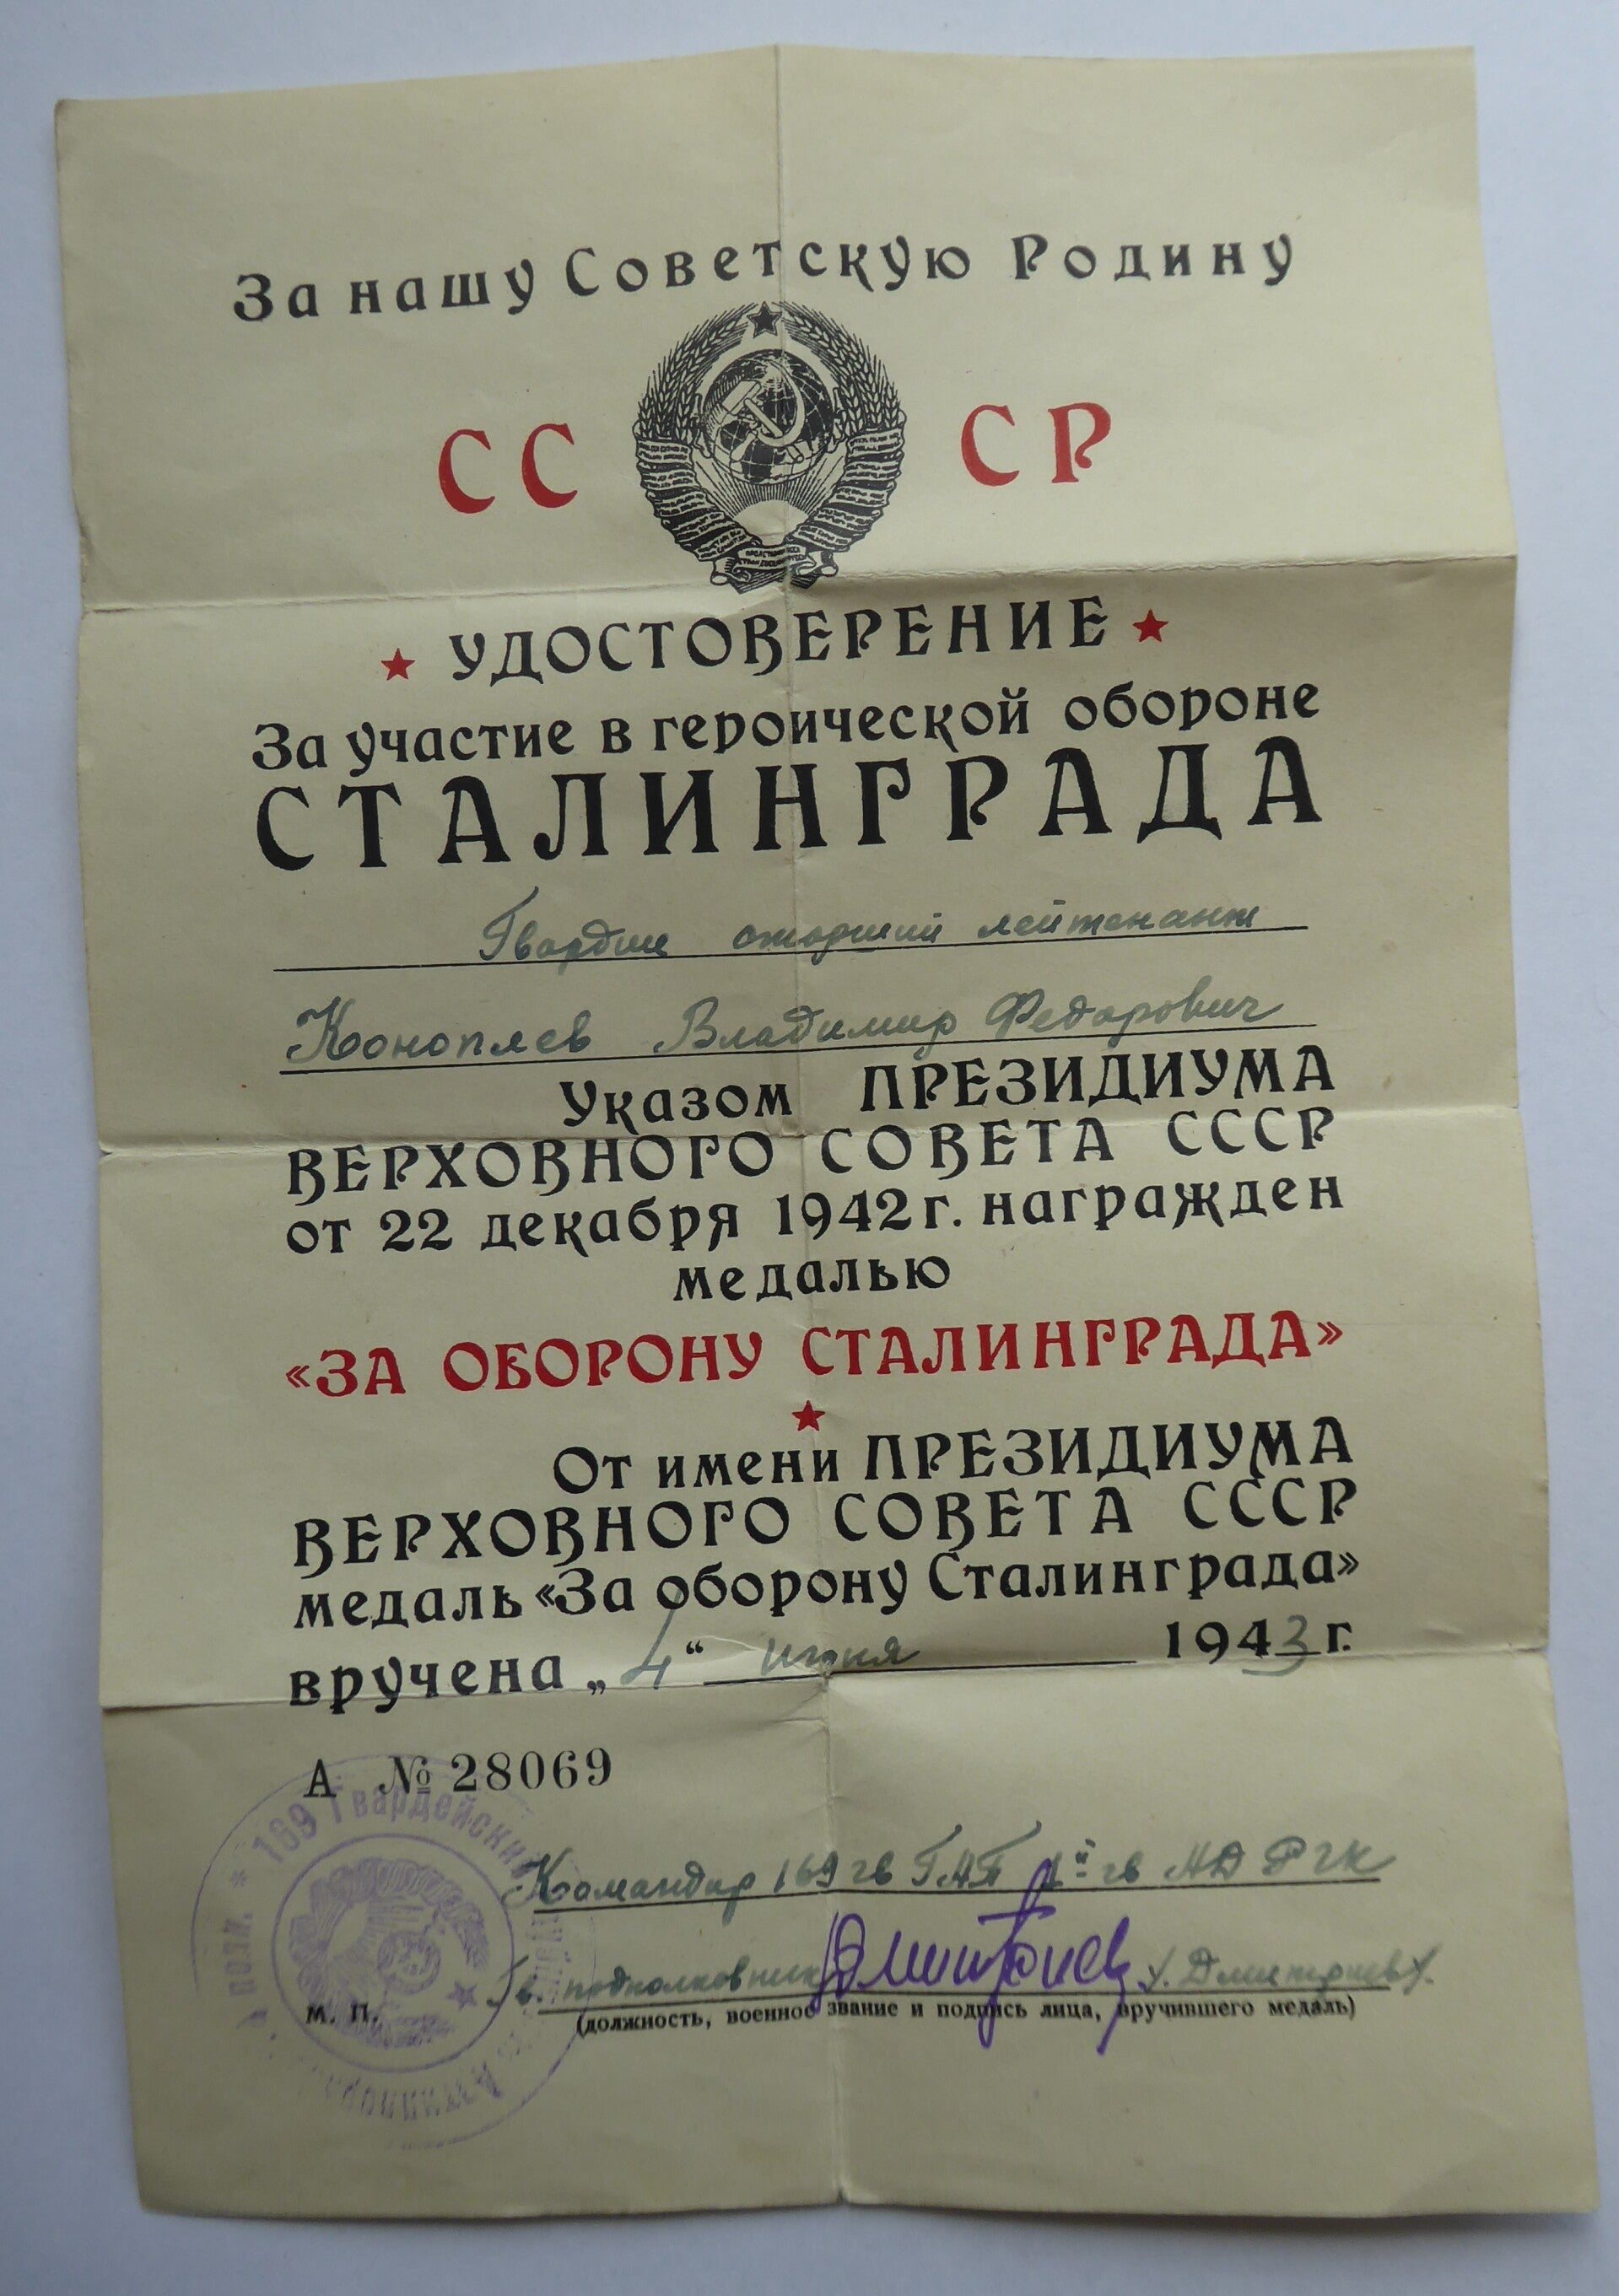 За нашу Советскую Родину
СС СР
УДОСТОВЕРЕНИЕ
За участие в героической обороне
СТАЛИНГРАДА
Гвардии старший лейтенант
Коноплев Владимир Федорович
Указом ПРЕЗИДИУМА
ВЕРХОВНОГО СОВЕТА СССР
от 22 декабря 1942 г. награжден
медалью
«ЗА ОБОРОНУ СТАЛИНГРАДА»
От имени ПРЕЗИДИУМА
ВЕРХОВНОГО СОВЕТА СССР
медаль «За оборону Сталинграда»
вручена „4“ 1943 г.
А № 28069
169 Гвардейский
Командир 169 гв ГАП гв АД РГК
Гв. подполковник Дмитриев /Дмитриев/.
м. п.
(должность, военное звание и подпись лица, вручившего медаль)